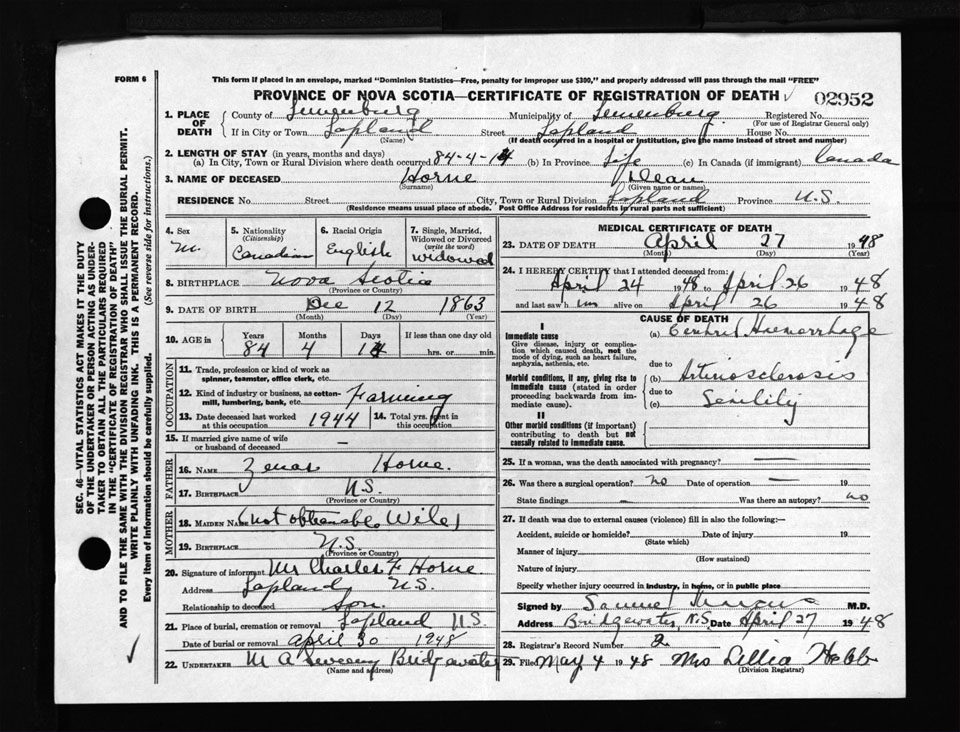 FORM 6
This form if placed in an envelope, marked "Dominion Statistics—Free, penalty for improper use $300," and properly addressed will pass through the mail "FREE"
PROVINCE OF NOVA SCOTIA—CERTIFICATE OF REGISTRATION OF DEATH 02952
SEC. 46—VITAL STATISTICS ACT MAKES IT THE DUTY
OF THE UNDERTAKER OR PERSON ACTING AS UNDER-
TAKER TO OBTAIN ALL THE PARTICULARS REQUIRED
IN THE "CERTIFICATE OF REGISTRATION OF DEATH"
AND TO FILE THE SAME WITH THE DIVISION REGISTRAR WHO SHALL ISSUE THE BURIAL PERMIT.
WRITE PLAINLY WITH UNFADING INK. THIS IS A PERMANENT RECORD.
Every item of information should be carefully supplied. (See reverse side for instructions.)
1. PLACE OF DEATH County of Lunenburg Municipality of Lunenburg Registered No.
(For use of Registrar General only)
If in City or Town Lapland Street Lapland House No.
(Name) (If death occurred in a hospital or institution, give the name instead of street and number)
2. LENGTH OF STAY (in years, months and days)
(a) In City, Town or Rural Division where death occurred 84-4-14 (b) In Province Life (c) In Canada (if immigrant) Canada
3. NAME OF DECEASED Horne Dean
(Surname) (Given name or names)
RESIDENCE No. Street City, Town or Rural Division Lapland Province N.S
(Residence means usual place of abode. Post Office Address for residents in rural parts not sufficient)
4. Sex M.
5. Nationality (Citizenship) Canadian
6. Racial Origin English
7. Single, Married, Widowed or Divorced (write the word) widowed
8. BIRTHPLACE Nova Scotia
(Province or Country)
9. DATE OF BIRTH Dec 12 1863
(Month) (Day) (Year)
10. AGE in Years Months Days If less than one day old
84 4 14 hrs. or min.
OCCUPATION
11. Trade, profession or kind of work as
spinner, teamster, office clerk, etc.
12. Kind of industry or business, as cotton-
mill, lumbering, bank, etc. Farming
13. Date deceased last worked at this occupation 1944 14. Total yrs. spent in this occupation
15. If married give name of wife
or husband of deceased —
FATHER
16. NAME Zenas Horne.
17. BIRTHPLACE N.S.
(Province or Country)
MOTHER
18. MAIDEN NAME (not obtenable Wile)
19. BIRTHPLACE N.S.
(Province or Country)
20. Signature of informant Mr Charles F Horne
Address Lapland N.S.
Relationship to deceased Son.
21. Place of burial, cremation or removal Lapland N.S.
Date of burial or removal April 30 1948
22. UNDERTAKER M A Sweeny Bridgewater
(Name and address)
MEDICAL CERTIFICATE OF DEATH
23. DATE OF DEATH April 27 1948
(Month) (Day) (Year)
24. I HEREBY CERTIFY that I attended deceased from:
April 24 1948 to April 26 1948
and last saw him alive on April 26 1948
CAUSE OF DEATH
I
Immediate cause
Give disease, injury or complica-
tion which caused death, not the
mode of dying, such as heart failure,
asphyxia, asthenia, etc.
(a) Cerebral Haemorrhage
due to
Morbid conditions, if any, giving rise to
immediate cause (stated in order
proceeding backwards from im-
mediate cause).
(b) Arteriosclerosis
due to
(c) Senility
II
Other morbid conditions (if important)
contributing to death but not
causally related to immediate cause.
25. If a woman, was the death associated with pregnancy? —
26. Was there a surgical operation? no Date of operation — 19
State findings — Was there an autopsy? no
27. If death was due to external causes (violence) fill in also the following:—
Accident, suicide or homicide? Date of injury 19
(State which)
Manner of injury
(How sustained)
Nature of injury
Specify whether injury occurred in industry, in home, or in public place
Signed by Samuel M.D.
Address Bridgewater, N.S. Date April 27 1948
28. Registrar's Record Number 2
29. Filed May 4 1948 Mrs Lillia Hebb
(Division Registrar)